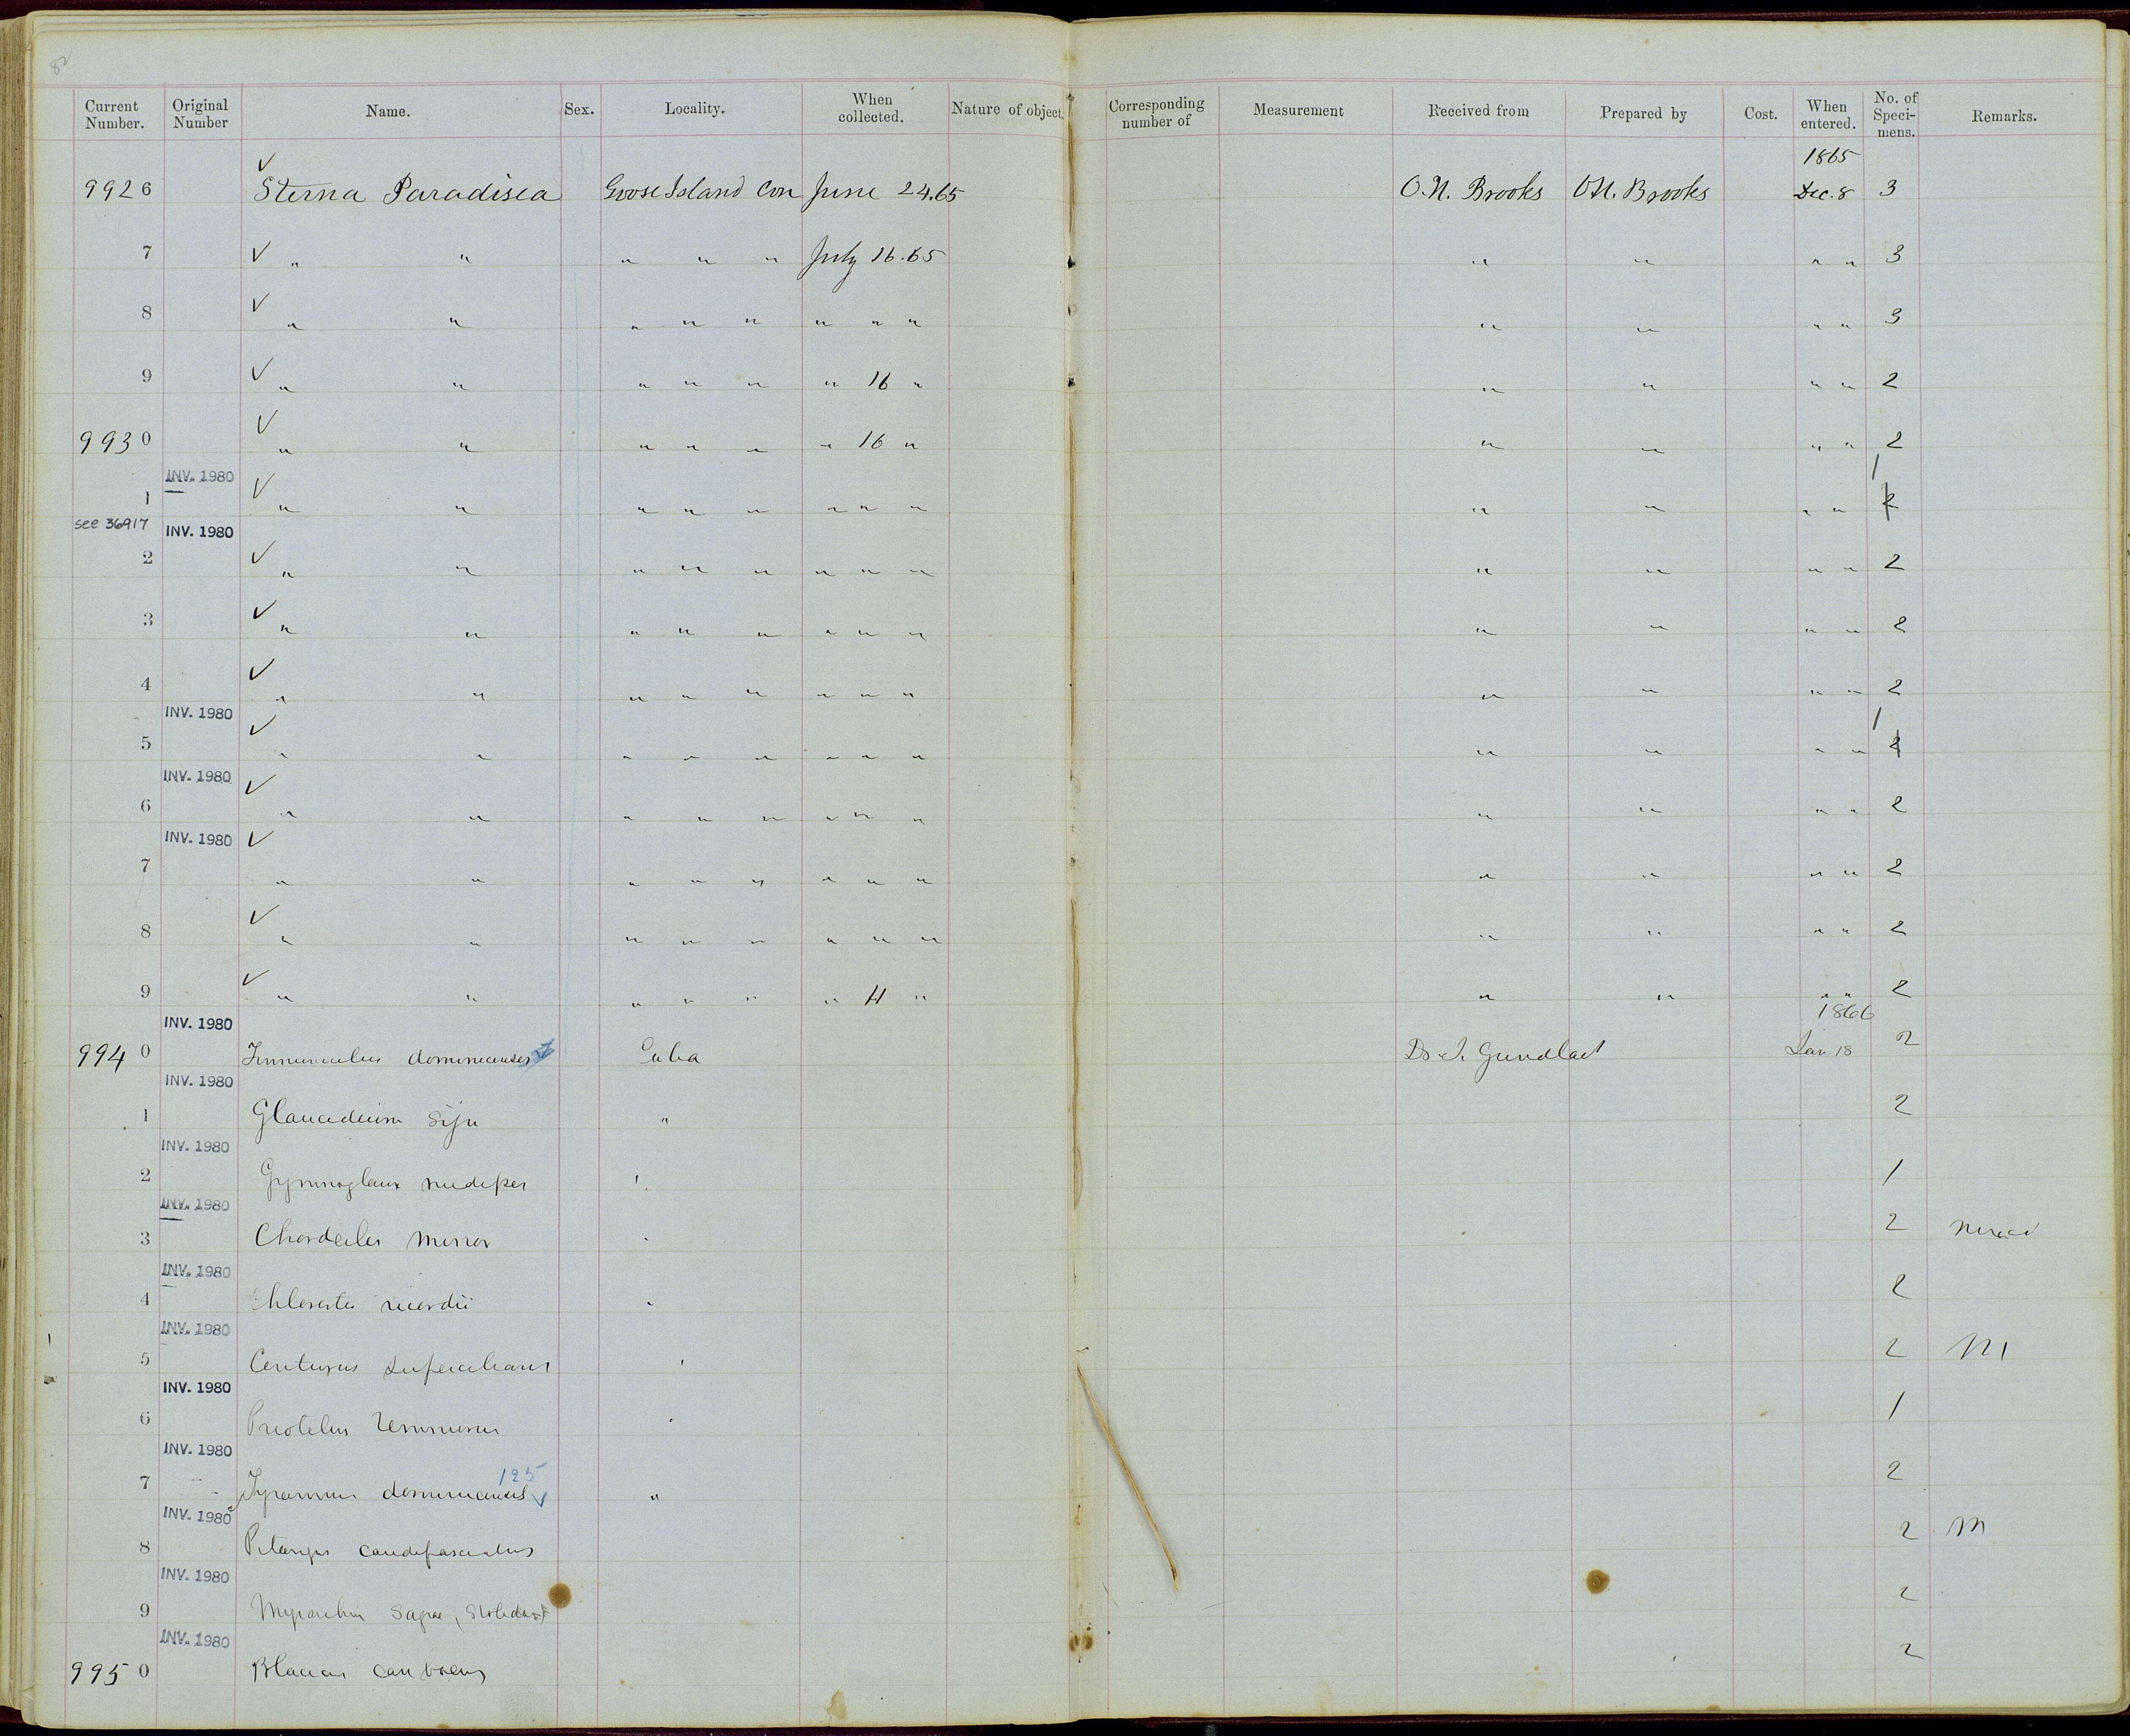 82
Current Number. Original Number Name. Sex. Locality. When collected. Nature of object. Corresponding number of Measurement Received from Prepared by Cost. When entered. No. of Specimens. Remarks.
1865
9926 ✓ Sterna Paradisea Goose Island Con June 24.65 O.N. Brooks O.N. Brooks Dec. 8 3
7 ✓ " " " " " July 16.65 " " " " 3
8 ✓ " " " " " " " " " " " " 3
9 ✓ " " " " " " 16 " " " " " 2
9930 ✓ " " " " " " 16 " " " " " 2
INV. 1980 1
1 ✓ " " " " " " " " " " " " 2
see 36917 INV. 1980
2 ✓ " " " " " " " " " " " " 2
3 ✓ " " " " " " " " " " " " 2
4 ✓ " " " " " " " " " " " " 2
INV. 1980 1
5 ✓ " " " " " " " " " " " " 2
INV. 1980
6 ✓ " " " " " " " " " " " " 2
INV. 1980
7 ✓ " " " " " " " " " " " " 2
8 ✓ " " " " " " " " " " " " 2
9 ✓ " " " " " " " " " " " 2
INV. 1980 1866
9940 dominicensis Cuba Dr J. Gundlach Jan 18 2
INV. 1980
1 Glaucidium Siju " 2
INV. 1980
2 Gymnoglaux nudipes " 1
INV. 1980
3 Chordeiles minor " 2
INV. 1980
4 Chlorestes ricordii " 2
INV. 1980
5 Centurus superciliaris " 2
INV. 1980
6 Priotelus temnurus " 1
INV. 1980
125
7 Tyrannus dominicensis ✓ " 2
INV. 1980
8 Pitangus caudifasciatus 2 M
INV. 1980
9 Myiarchus Sagrae (Stolidus) 2
INV. 1980
9950 Blacicus caribaeus 2